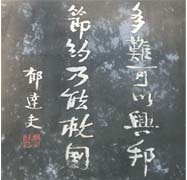 多難可以興邦
節約乃能救國
郁達夫